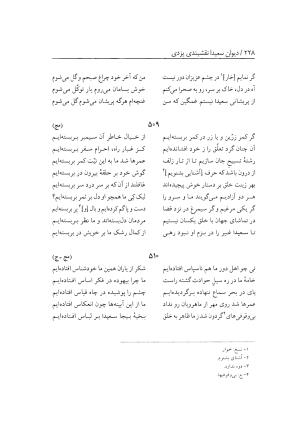 ۲۲۸ / دیوان سعیدا نقشبندی یزدی
گر نمایم [خار]¹ در چشم عزیزان دور نیست
من که آخر خود چراغ صبحم و گل می‌شوم
آه در دل، خاک بر سر، رو به صحرا می‌کنم
خوش بسامان می‌روم بار توکّل می‌شوم
از پریشانی سعیدا نیستم غمگین که من
غنچه‌ام هرگه پریشان می‌شوم گل می‌شوم
۵۰۹
(مج)
گر کمر زرّین و یا زر در کمر بربسته‌ایم
از خیال خاطر آن سیمبر بربسته‌ایم
آن چنان گرد تعلّق را ز خود افتانده‌ایم
کز غبار راه، احرام سفر بربسته‌ایم
رشتهٔ تسبیح جان سازیم تا از تار زلف
عمرها شد ما به این نیّت کمر بربسته‌ایم
از درون باشد که حرف [آشنایی بشنویم]²
گوش خود بر حلقهٔ بیرون در بربسته‌ایم
بهر زینت خلق بر دستار خوش پیچیده‌اند
غافلند از آن که بر سر درد سر بربسته‌ایم
هر دو آزادیم می‌گویند ما و سرو را
لیک کی ما همچو او دل بر ثمر بربسته‌ایم
گر یکی مرغیم و گر سیمرغ در نزد قضا
دست و پا گم کرده‌ایم و بال [و]³ پر بربسته‌ایم
در تماشای جهان با خلق یکسان نیستیم
مردمان دل‌بسته‌اند و ما نظر بربسته‌ایم
تا سعیدا غیر را در بزم او نبود رهی
از کمال رشک ما بر خویش در بربسته‌ایم
۵۱۰
(مج ـ ج)
نی چو اهل دور ما هم ناسپاس افتاده‌ایم
شکر از یاران همین ما خودشناس افتاده‌ایم
خامهٔ ما در رهٔ سیل حوادث گشته راست
ما چرا بیهوده در فکر اساس افتاده‌ایم
در پی بحر سماع نهاده برگردیده‌ایم
چشم را پوشیده در چاه قیاس افتاده‌ایم
عمرها شد روی مهر از ماهرویان رو نداد
ما از این آیینه‌ها چون انعکاس افتاده‌ایم
بی‌وقوفی‌های⁴ گردون شد ز ما ظاهر به خلق
بخیهٔ بیجا سعیدا بر لباس افتاده‌ایم
۱- نسخ: خوار
۲- آشنای بشنوم
۳- «و» ندارد
۴- ج: بی‌وقوفیها